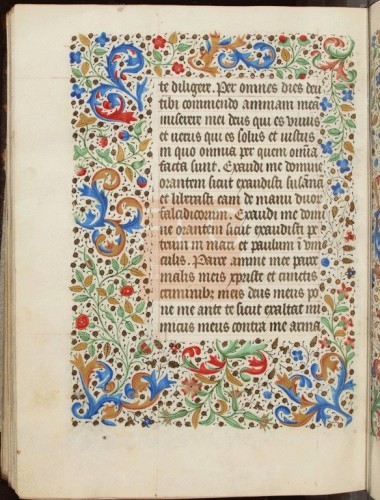 te diligere. Per omnes dies deus
tibi commendo animam meã
miserere mei deus qui es viuus
et uerus qui es solus et iustus
in quo omnia per quem om̃ia
facta sunt. Exaudi me domine
orantem sicut exaudisti susãnã
et liberasti eam de manu duor
falcidicorum. Exaudi me domi
ne orantem sicut exaudisti pe
trum in mari et paulum ĩ vin
culis. Parce anime mee parce
malis meis xpriste et cunctis
criminibꝫ meis deus meus po
ne me ante te sicut exaltat ini
micus meus contra me arma